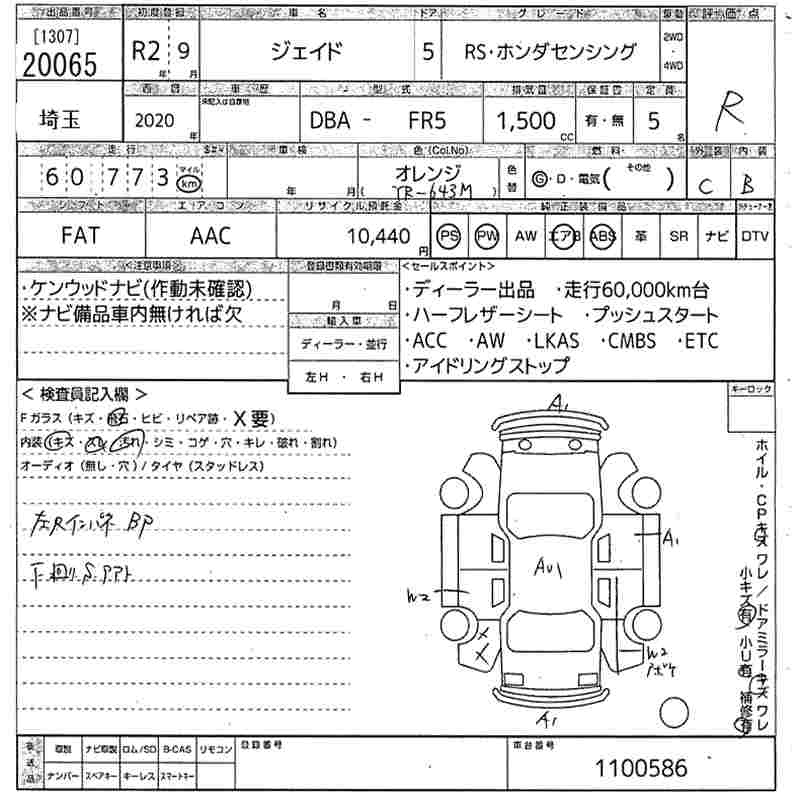 出品番号 初度登録 車名 ドア グレード 駆動 評価点
[1307]
20065 R2年 9月 ジェイド 5 RS・ホンダセンシング 2WD・4WD R
西暦 車歴 型式 排気量 保証書 定員
埼玉 2020年 未記入は自家用 DBA - FR5 1,500cc 有・無 5名
走行 車検 色(Col.No) 燃料 外装 内装
60773 マイル km 年 月 オレンジ (TR-643M) 色替 G・D・電気( その他 ) C B
シフト エアコン リサイクル預託金 純正装備品
FAT AAC 10,440円 PS PW AW エアB ABS 革 SR ナビ DTV
<注意事項> 登録書類有効期限 <セールスポイント>
・ケンウッドナビ(作動未確認) 月 日 ・ディーラー出品 ・走行60,000km台
※ナビ備品車内無ければ欠 輸入車 ・ハーフレザーシート ・プッシュスタート
ディーラー・並行 ・ACC ・AW ・LKAS ・CMBS ・ETC
左H ・ 右H ・アイドリングストップ
<検査員記入欄> キーロック
Fガラス(キズ・飛石・ヒビ・リペア跡・X要)
内装(キズ・スレ・汚れ・シミ・コゲ・穴・キレ・破れ・割れ)
オーディオ(無し・穴)/タイヤ(スタッドレス)
左Rインパネ BP
下回りS
A1
A1
AU1
W2
X
X
W2
A1
ホイル・CPキズワレ/ドアミラーキズワレ
小キズ有 小U有 補修有
後送品 取説 ナビ取説 ロム/SD B-CAS リモコン 登録番号 車台番号
ナンバー スペアキー キーレス スマートキー 1100586